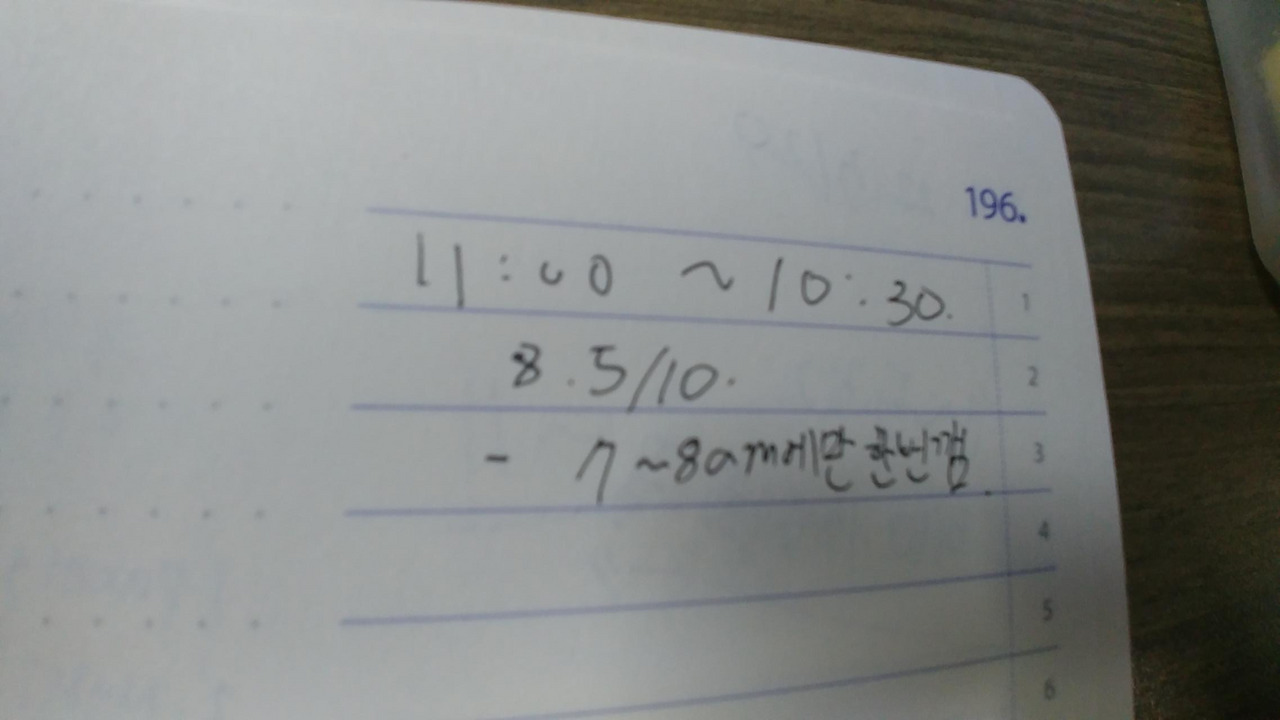 196.
11:00 ~ 10:30. 1
8.5/10. 2
- 7~8am에만 한번깸. 3
4
5
6